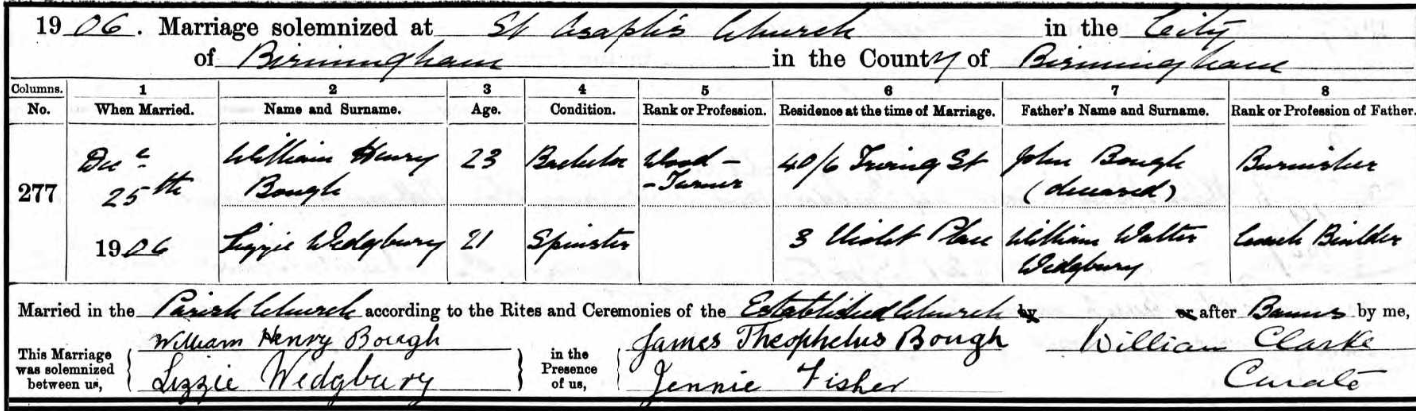 1906. Marriage solemnized at St Asaph's Church in the City
of Birmingham in the County of Birmingham
Columns. 1 2 3 4 5 6 7 8
No. When Married. Name and Surname. Age. Condition. Rank or Profession. Residence at the time of Marriage. Father's Name and Surname. Rank or Profession of Father.
Dec William Henry 23 Bachelor Wood- 40/6 Irving St John Bough Burnisher
277 25th Bough -Turner (deceased)
1906 Lizzie Wedgbury 21 Spinster 3 Violet Place William Walter Coach Builder
Wedgbury
Married in the Parish Church according to the Rites and Ceremonies of the Established Church by or after Banns by me,
This Marriage was solemnized between us, William Henry Bough in the Presence of us, James Theophelus Bough William Clarke
Lizzie Wedgbury Jennie Fisher Curate